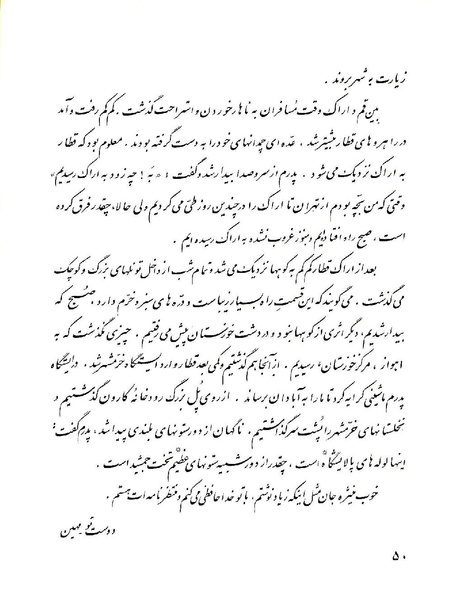 زیارت به شهر بروند .
بین قم و اراک وقت مسافران به ناهار خوردن و استراحت گذشت . کم کم رفت و آمد
در راهروهای قطار بیشتر شد . عده ای چمدانهای خود را به دست گرفته بودند . معلوم بود که قطار
به اراک نزدیک می شود . پدرم از سروصدا بیدار شد و گفت : « به ! چه زود به اراک رسیدیم»
وقتی که من بچه بودم از تهران تا اراک را در چندین روز طی می کردیم ولی حالا، چقدر فرق کرده
است ، صبح راه افتادیم و هنوز غروب نشده به اراک رسیده ایم .
بعد از اراک قطار کم کم به کوهها نزدیک می شد و تمام شب از داخل تونلهای بزرگ و کوچک
می گذشت . می گویند که این قسمت راه بسیار زیباست و دره های سبز و خرم دارد . صبح که
بیدار شدیم ، دیگر اثری از کوهها نبود و در دشت خوزستان پیش می رفتیم . چیزی نگذشت که به
اهواز ، مرکز خوزستان ، رسیدیم . از آنجا هم گذشتیم و کمی بعد قطار وارد ایستگاه خرمشهر شد . در ایستگاه
پدرم ماشینی کرایه کرد تا ما را به آبادان برساند . از روی پل بزرگ رودخانه کارون گذشتیم و
نخلستانهای خرمشهر را پشت سر گذاشتیم . ناگهان از دور ستونهای بلندی پیدا شد ، پدرم گفت :
اینها لوله های پالایشگاه است ، چقدر از دور شبیه ستونهای عظیم تخت جمشید است .
خوب منیژه جان مثل اینکه زیاد نوشتم ، با تو خداحافظی می کنم و منتظر نامه ات هستم .
دوست تو مهین
۵۰